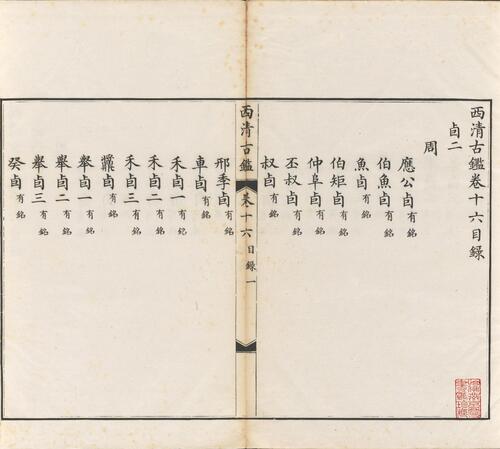 西清古鑑卷十六目錄
卣二
周
應公卣有銘
伯魚卣有銘
魚卣有銘
伯矩卣有銘
仲阜卣有銘
丕叔卣有銘
叔卣有銘
西清古鑑 卷十六目錄 一
邢季卣有銘
車卣有銘
禾卣一有銘
禾卣二有銘
禾卣三有銘
卣有銘
舉卣一有銘
舉卣二有銘
舉卣三有銘
癸卣有銘